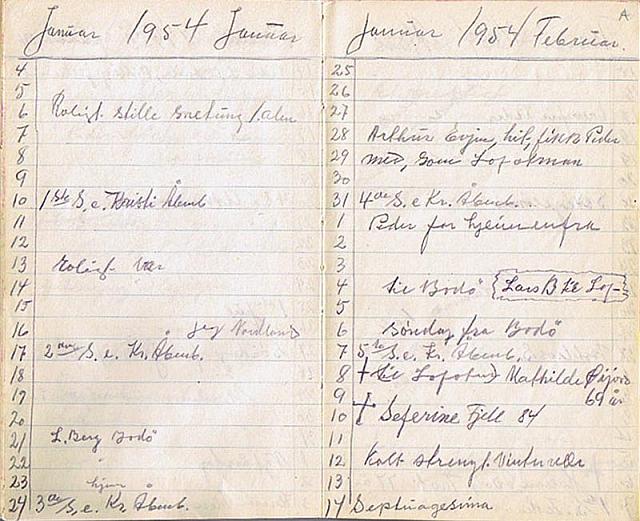 Januar 1954 Januar
4
5
6 Roligt stille
7
8
9
10 1ste S. e. Kristi Åbenb.
11
12
13 Roligt Vær
14
15
16 Jeg Nordland
17 2den S. e. Kr. Åbenb.
18
19
20
21 L. Berg Bodö
22
23 hjem
24 3de S. e. Kr. Åbenb.
Januar 1954 Februar. A
25
26
27
28 Arthur Evjen, hit, fikk Peder
29 med, som Lofotman
30
31 4de S. e Kr. Åbenb.
1 Peder for hjemmenfra
2
3
4 til Bodö {Lars B til Lof-}
5
6 Söndag fra Bodö
7 5te S. e. Kr. Åbenb.
8 † til Lofoten) Mathilde
9 69 år
10 † Seferine Fjell 84
11
12 Kalt strengt. Vinterver
13
14 Septuagesima